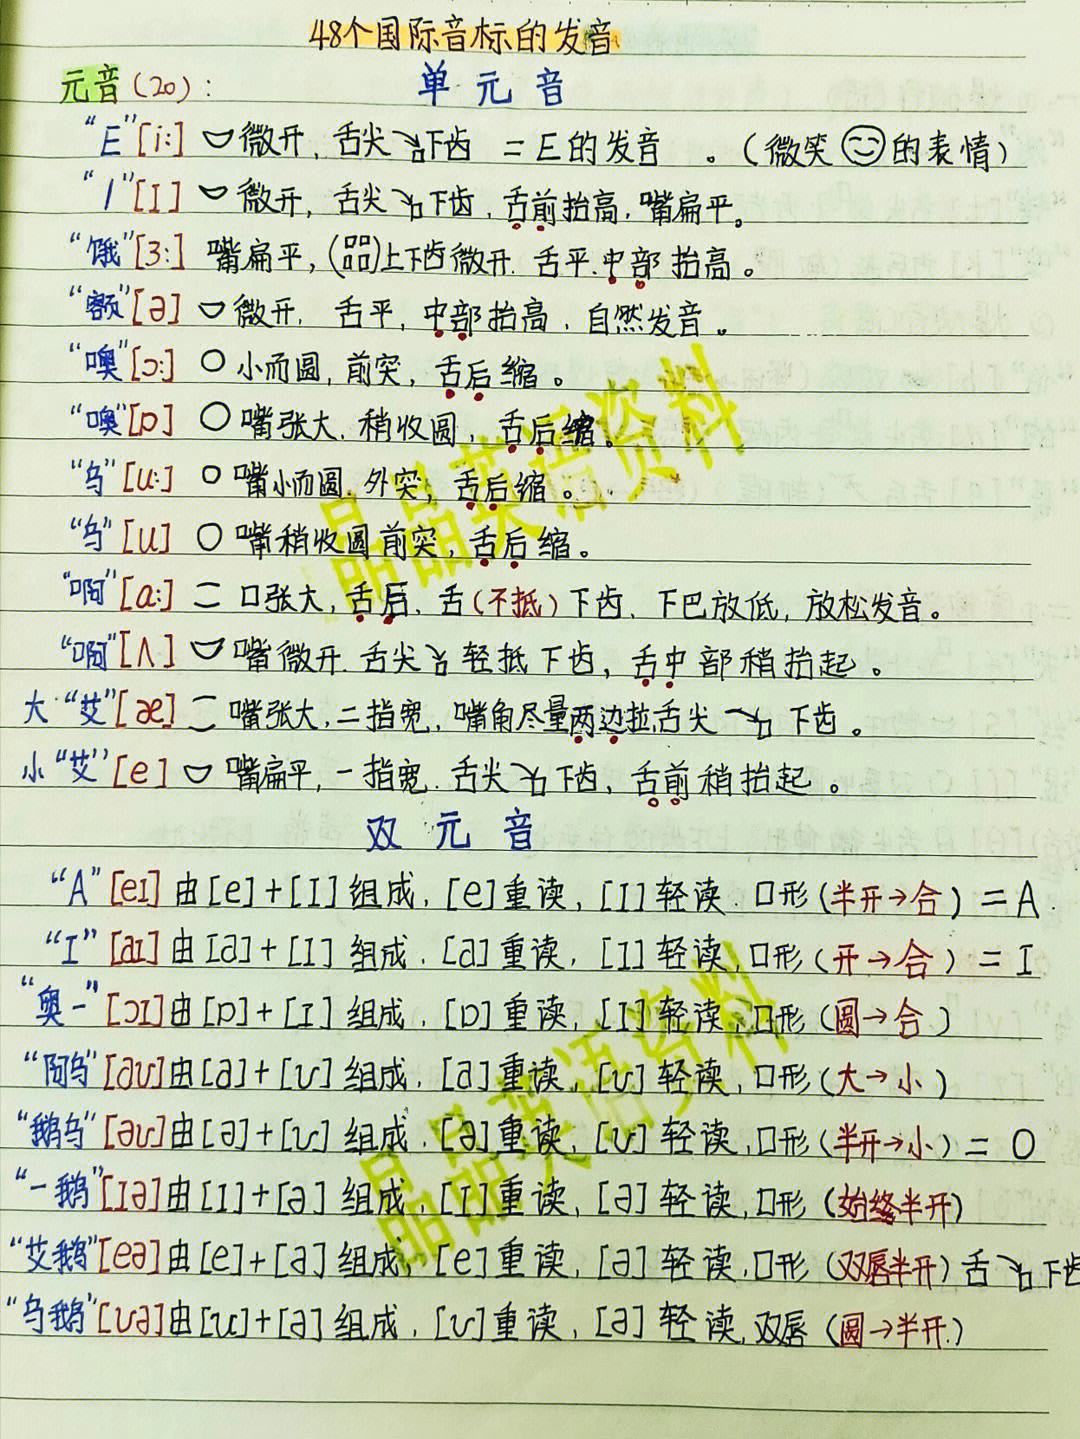 48个国际音标的发音
元音(20): 单元音
“E”[i:] 微开,舌尖↘下齿 =E的发音。(微笑的表情)
“I”[I] 微开,舌尖↘下齿,舌前抬高,嘴扁平。
“饿”[3:] 嘴扁平,(品)上下齿微开.舌平.中部抬高。
“额”[ə] 微开.舌平,中部抬高.自然发音。
“噢”[ɔ:] ○小而圆,前突,舌后缩。
“噢”[ɒ] ○嘴张大.稍收圆,舌后缩。
“乌”[u:] ○嘴小而圆.外突,舌后缩。
“乌”[u] ○嘴稍收圆前突,舌后缩。
“啊”[a:] 口张大,舌后.舌(不抵)下齿.下巴放低,放松发音。
“啊”[Λ] 嘴微开.舌尖↘轻抵下齿,舌中部稍抬起。
大“艾”[æ] 嘴张大,二指宽,嘴角尽量两边拉,舌尖↘下齿。
小“艾”[e] 嘴扁平,一指宽.舌尖↘下齿,舌前稍抬起。
双元音
“A”[eI]由[e]+[I]组成,[e]重读,[I]轻读,口形(半开→合)=A
“I”[aI]由[a]+[I]组成.[a]重读,[I]轻读,口形(开→合)=I
“奥一”[ɔI]由[ɒ]+[I]组成,[ɒ]重读,[I]轻读,口形(圆→合)
“阿乌”[aʊ]由[a]+[ʊ]组成.[a]重读,[ʊ]轻读,口形(大→小)
“鹅乌”[əʊ]由[ə]+[ʊ]组成.[ə]重读,[ʊ]轻读,口形(半开→小)=O
“一鹅”[Iə]由[I]+[ə]组成.[I]重读,[ə]轻读,口形(始终半开)
“艾鹅”[eə]由[e]+[ə]组成,[e]重读,[ə]轻读,口形(双唇半开)舌↘下齿
“乌鹅”[ʊə]由[u]+[ə]组成,[ʊ]重读,[ə]轻读,双唇(圆→半开.)
晶晶英语资料
晶晶英语资料